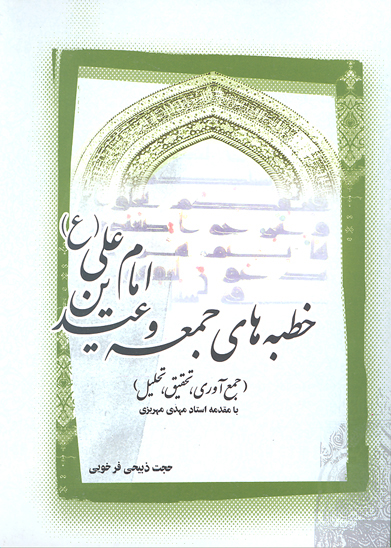 خطبه های جمعه و عیدین
امام علی (ع)
(جمع آوری، تحقیق، تحلیل)
با مقدمه استاد مهدی مهریزی
حجت ذبیحی فرخویی